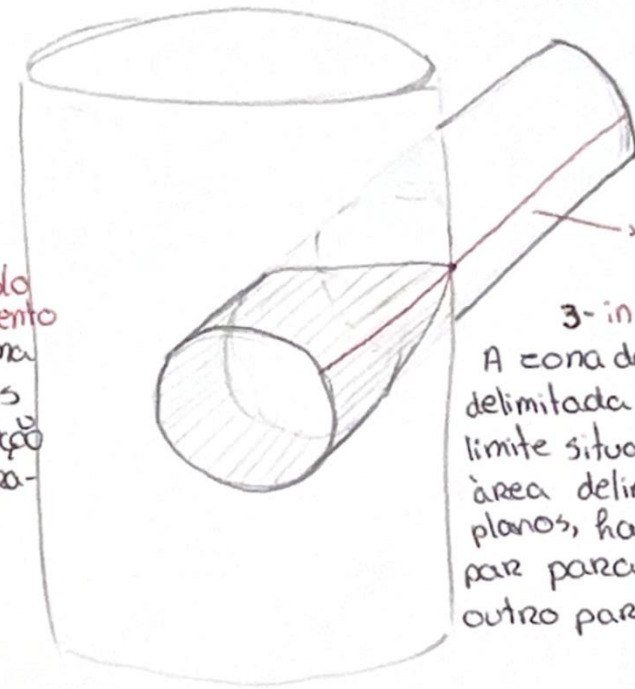 do
ento
na
s
ção
ra-
3- in
A zona de
delimitada
limite situ
àrea deli
planos, ha
par para
outro par